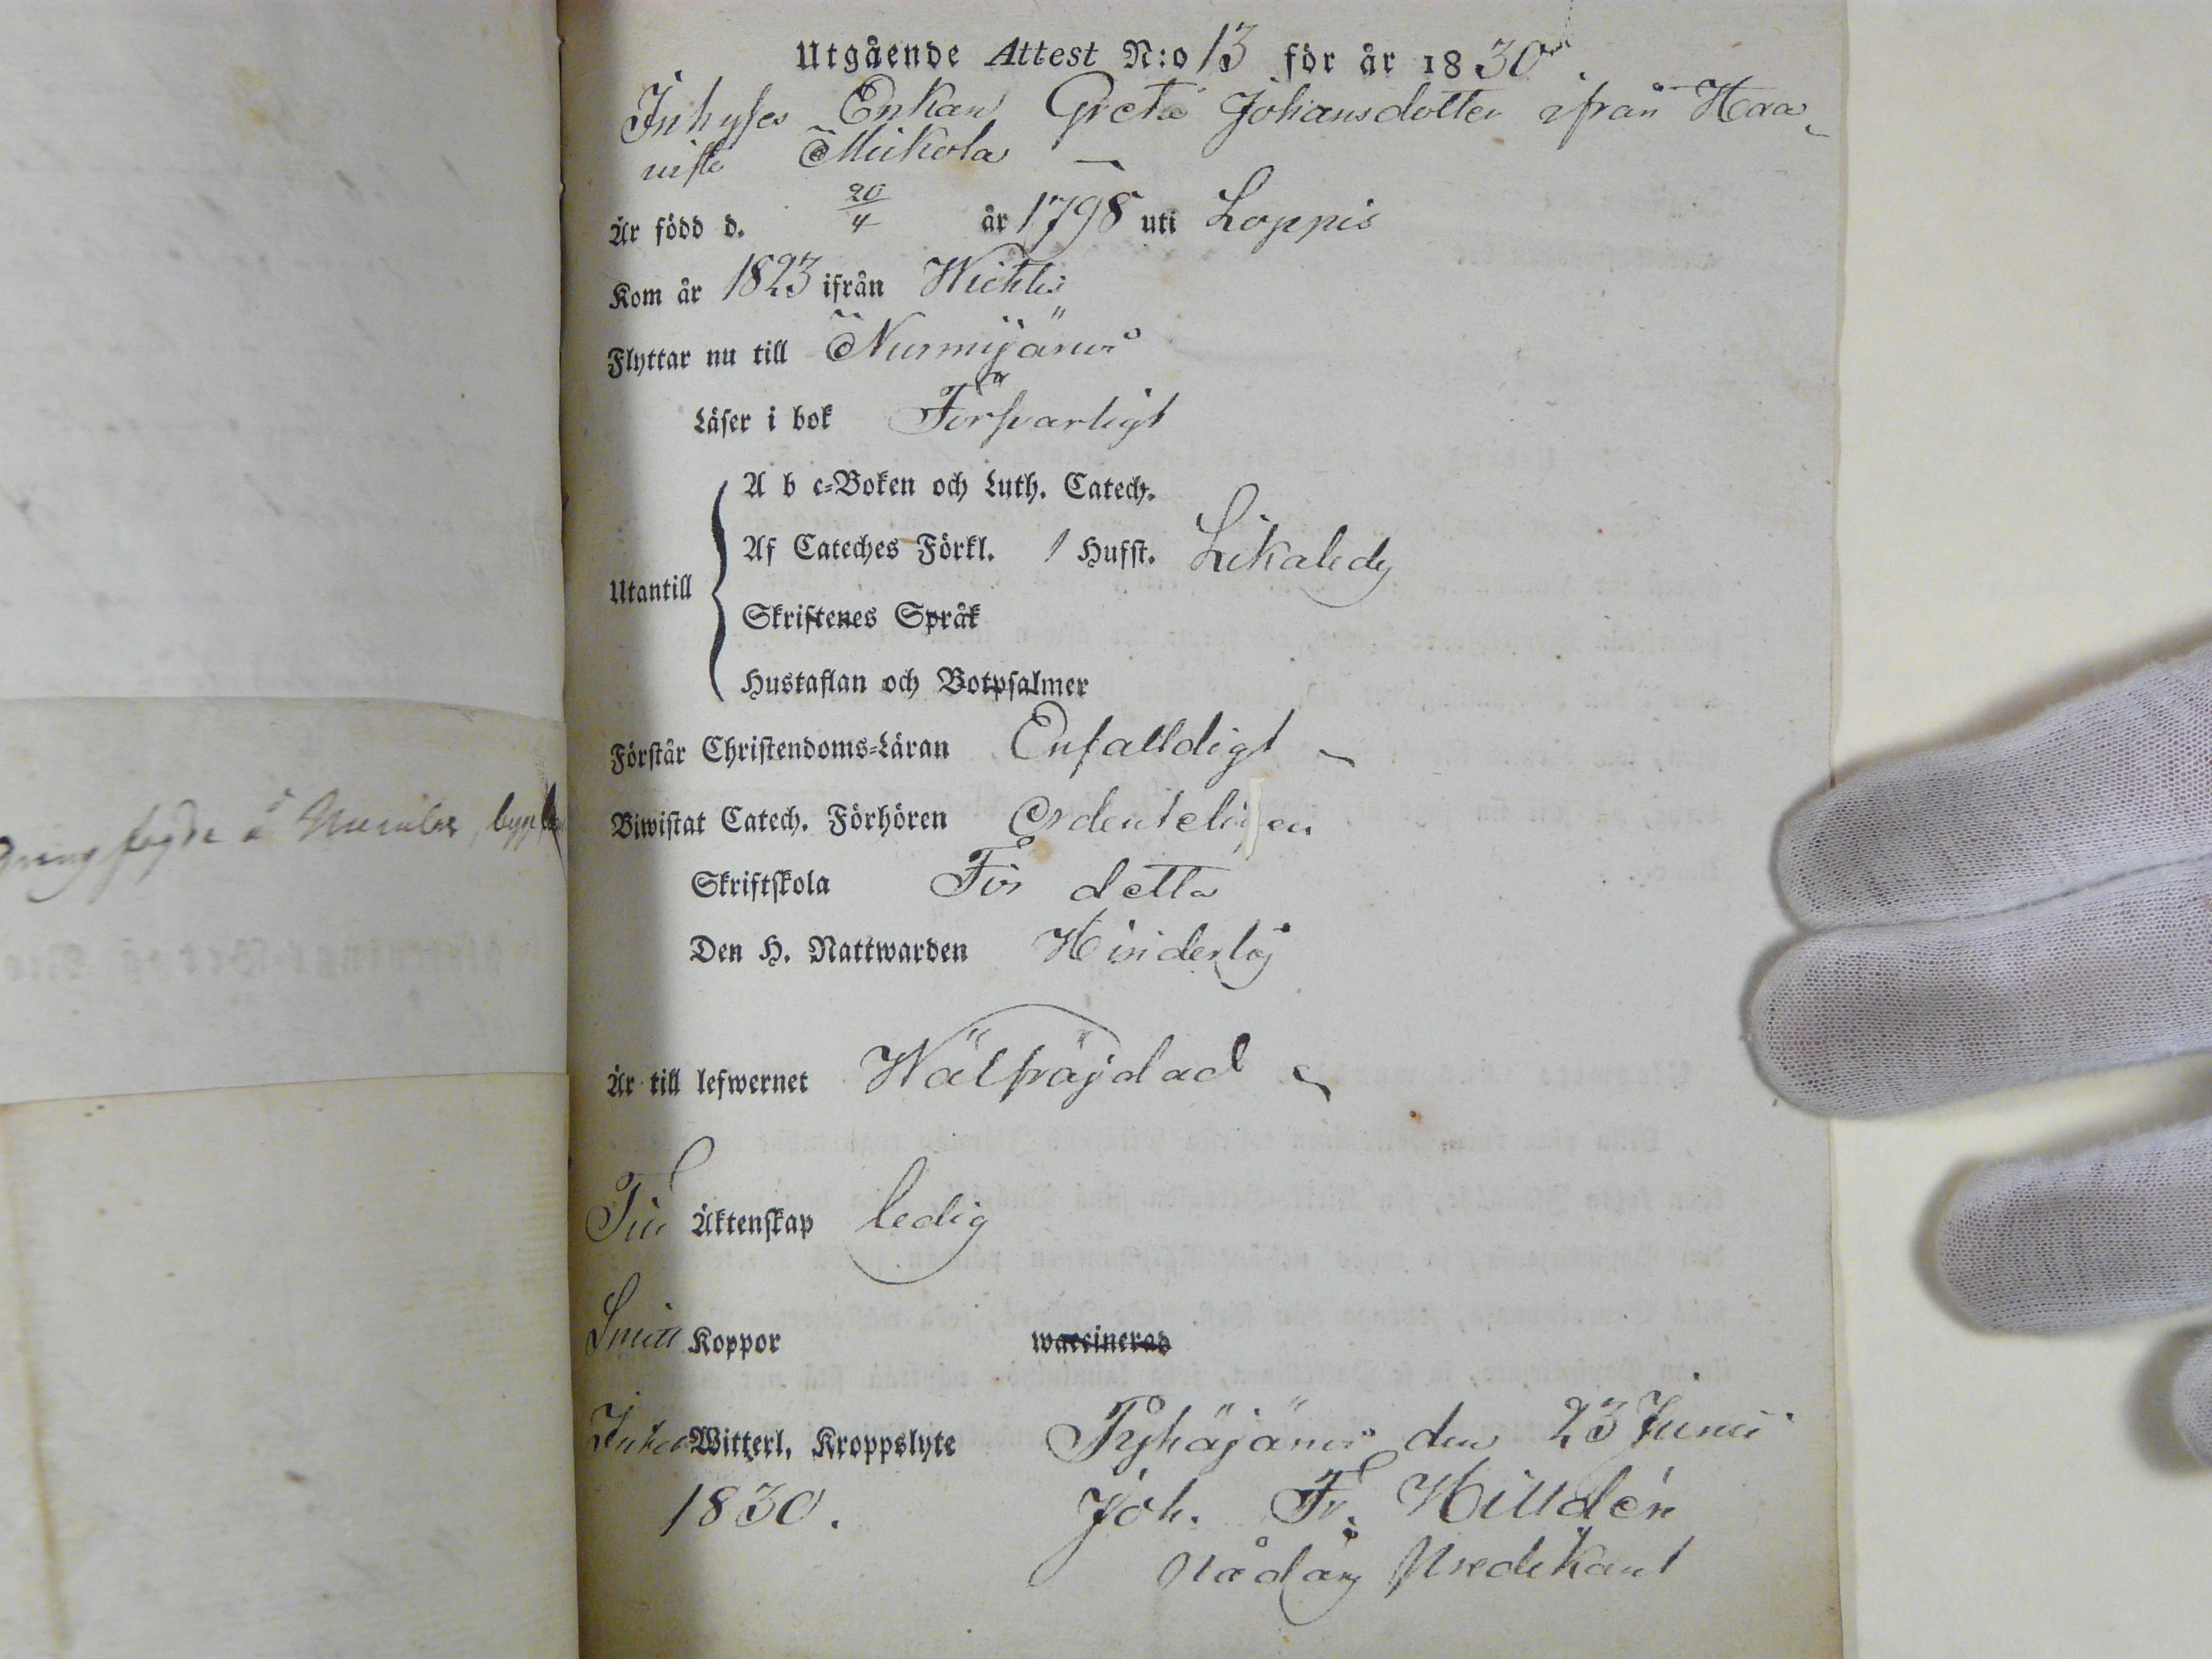 Utgående Attest N:o 13 för år 1830
Inhyses Enkan Greta Johansdotter ifrån Haa-
niste Mikola
Är född d. 20/4 år 1798 uti Loppis
Kom år 1823 ifrån Wichtis
Flyttar nu till Nurmijärvi
Läser i bok Försvarligt
A b c-Boken och Luth. Catech.
Af Cateches Förkl. 1 Hufst. Likaledes
Utantill
Skriftenes Språk
Hustaflan och Botpsalmer
Förstår Christendoms-Läran Enfalldigt
Biwistat Catech. Förhören Ordenteligen
Skriftskola För detta
Den H. Nattwarden Hinderlös
Är till lefwernet Wälfräjdad
Till Äktenskap ledig
Smitt Koppor waccinerad
Witterl. Kroppslyte Pyhäjärvi den 23 Junii
1830. Joh. Fr. Hilldén
Nådårs Predikant